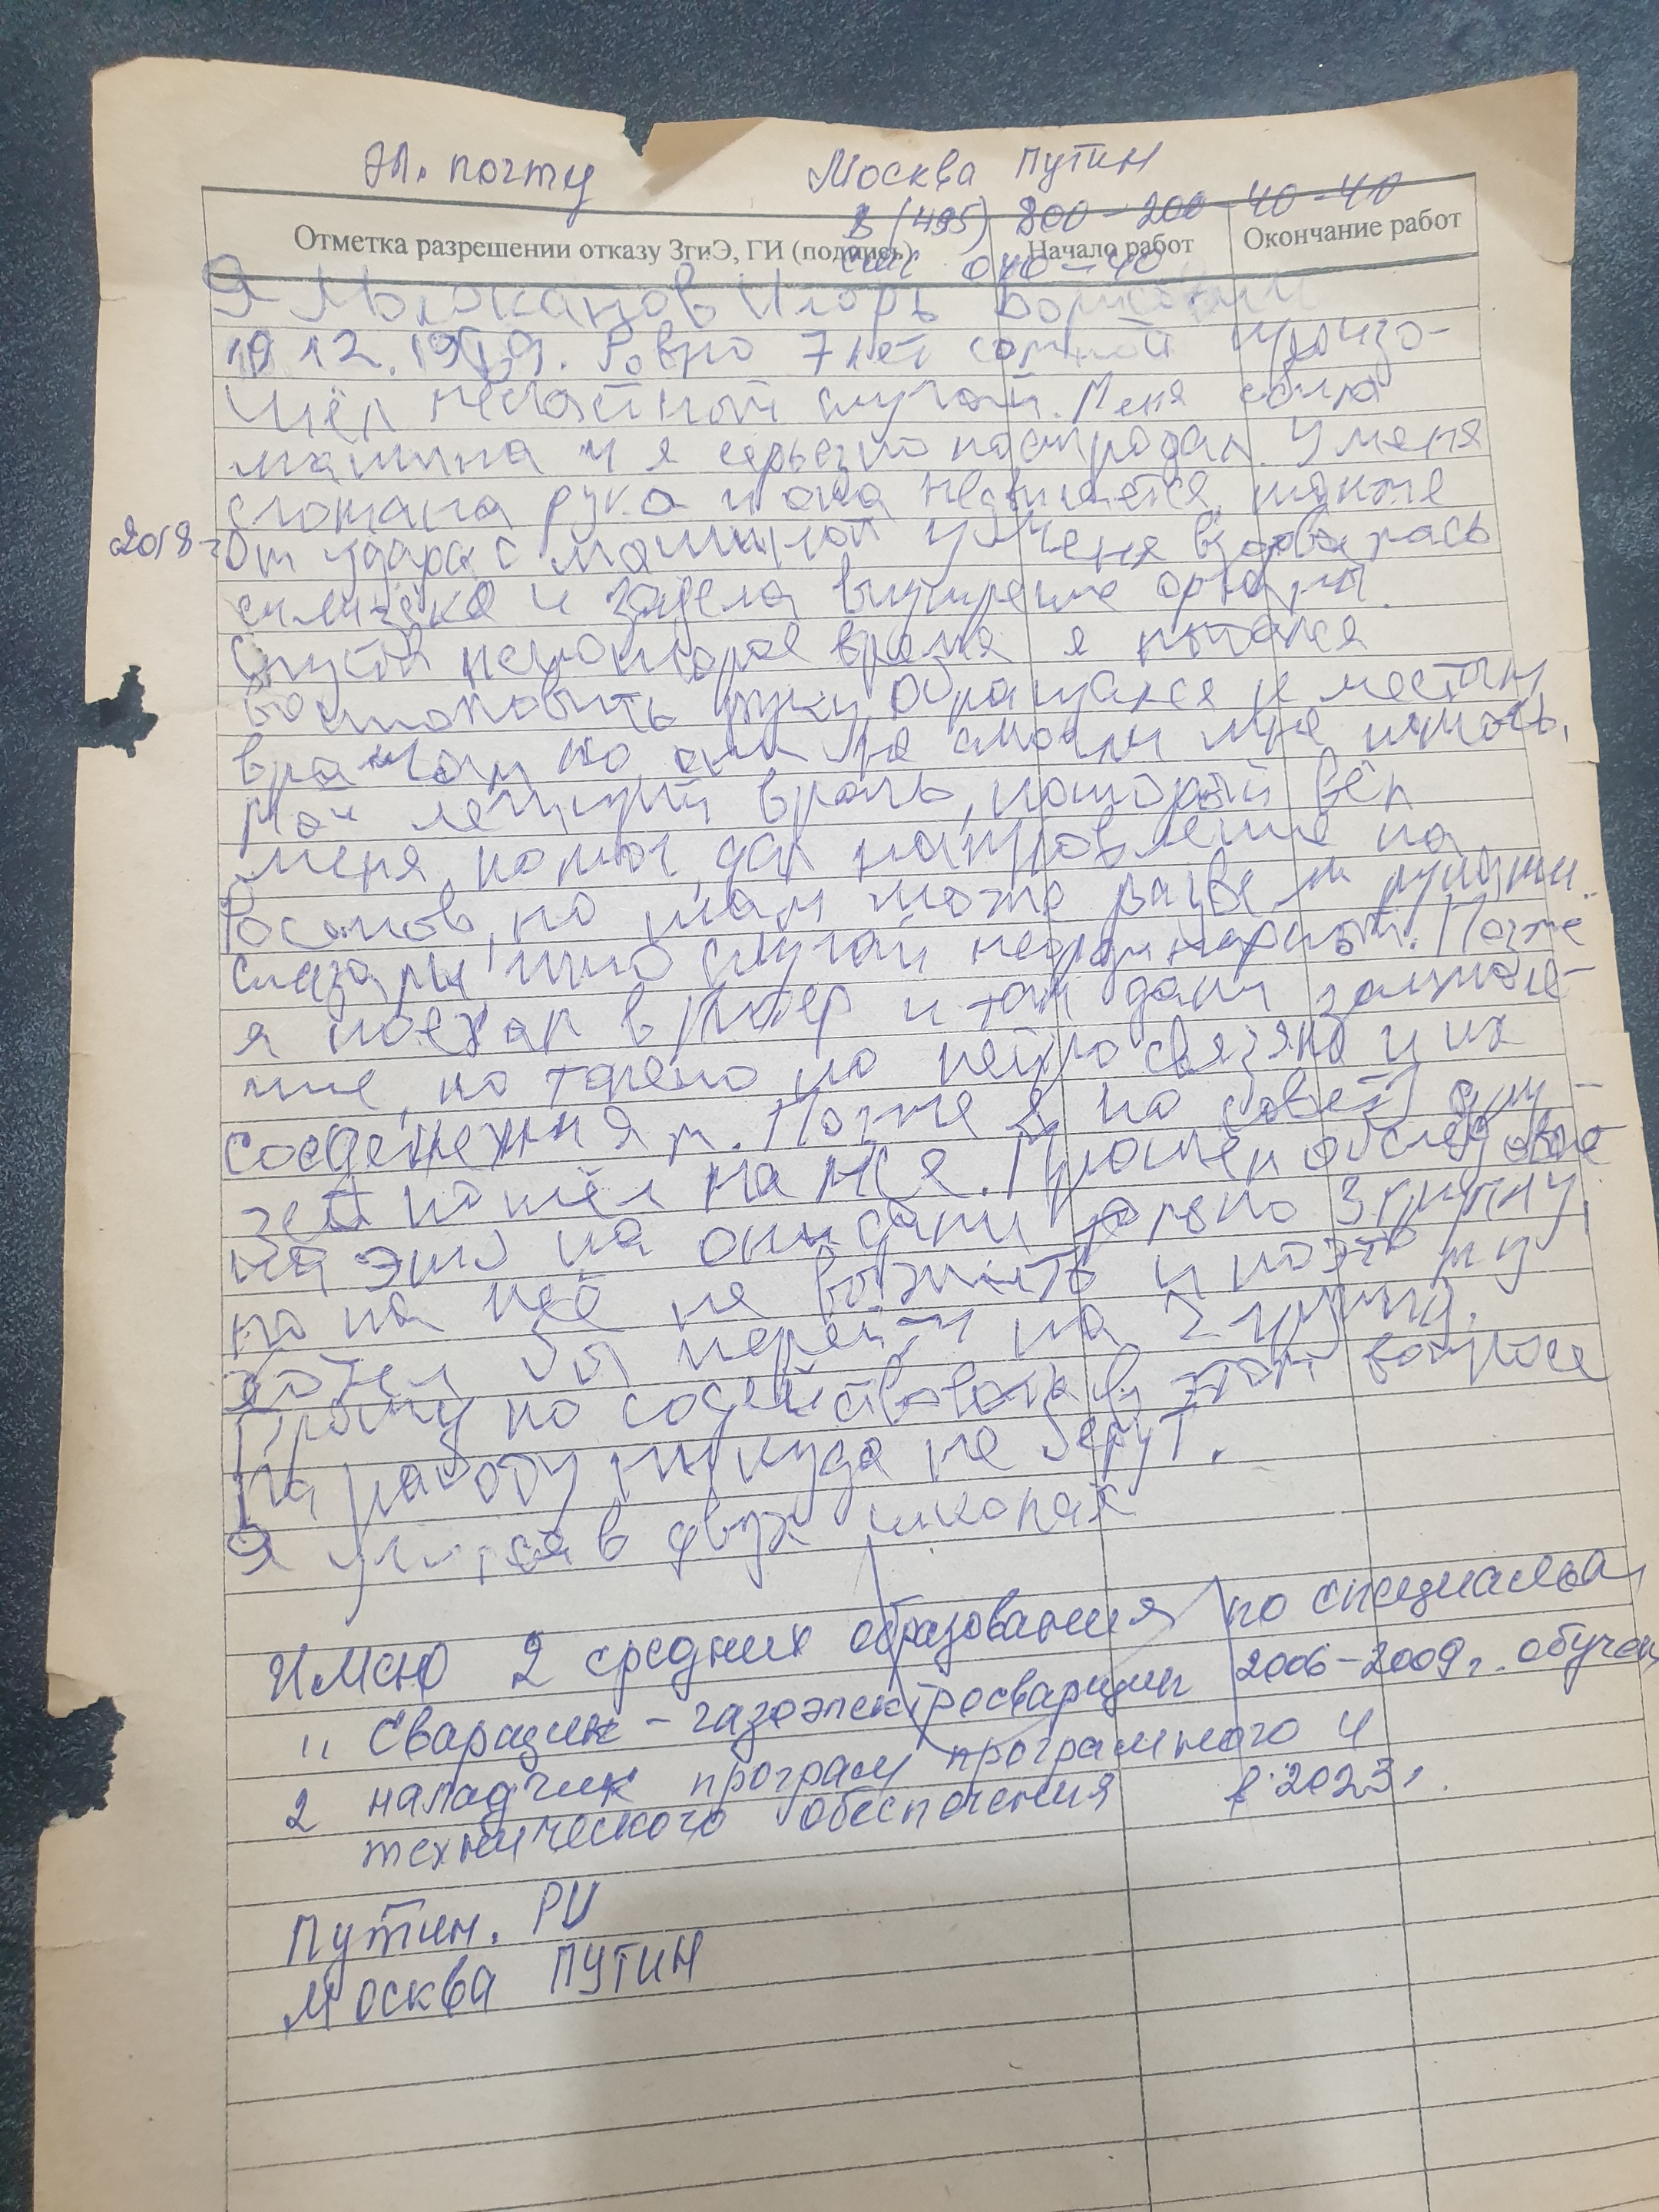 Эл. почту Москва Путин
8 (495) 800-200-40-40
Отметка разрешении отказу ЗгиЭ, ГИ (подпись) Начало работ Окончание работ
040-40
Я Игорь
12. Ровно 7 лет произо-
шёл случай. Меня сбила
машина и я серьезно пострадал. У меня
сломана рука и она также
2018г От удара с машиной у меня взорвалась
и задела внутрение органы.
Спустя некоторое время я пытался
руку, обращался к местным
врачам, но они не смогли мне помочь.
Мой лечущий врач, который вёл
меня, помог, дал направление на
но там тоже
сказали, что случай неординарный. Позже
я поехал в Питер и там дали заключе-
ние, но только по нейро связяно у их
Позже я по совету дру-
зей пошёл на МСЭ. Прошёл обследование
на это они дали только 3 группу,
но на неё не и поэтому
хотел бы перейти на 2 группу.
Прошу по содействовать в этом вопросе
На работу никуда не берут.
Я учился в двух школах
Имею 2 средних образования по специальн
1, Сварщик - газоэлектросварщик 2006-2009г. обучен
2 наладчик програм програмного и
технического обеспечения в 2023г.
Путин. РU
Москва ПУТИН